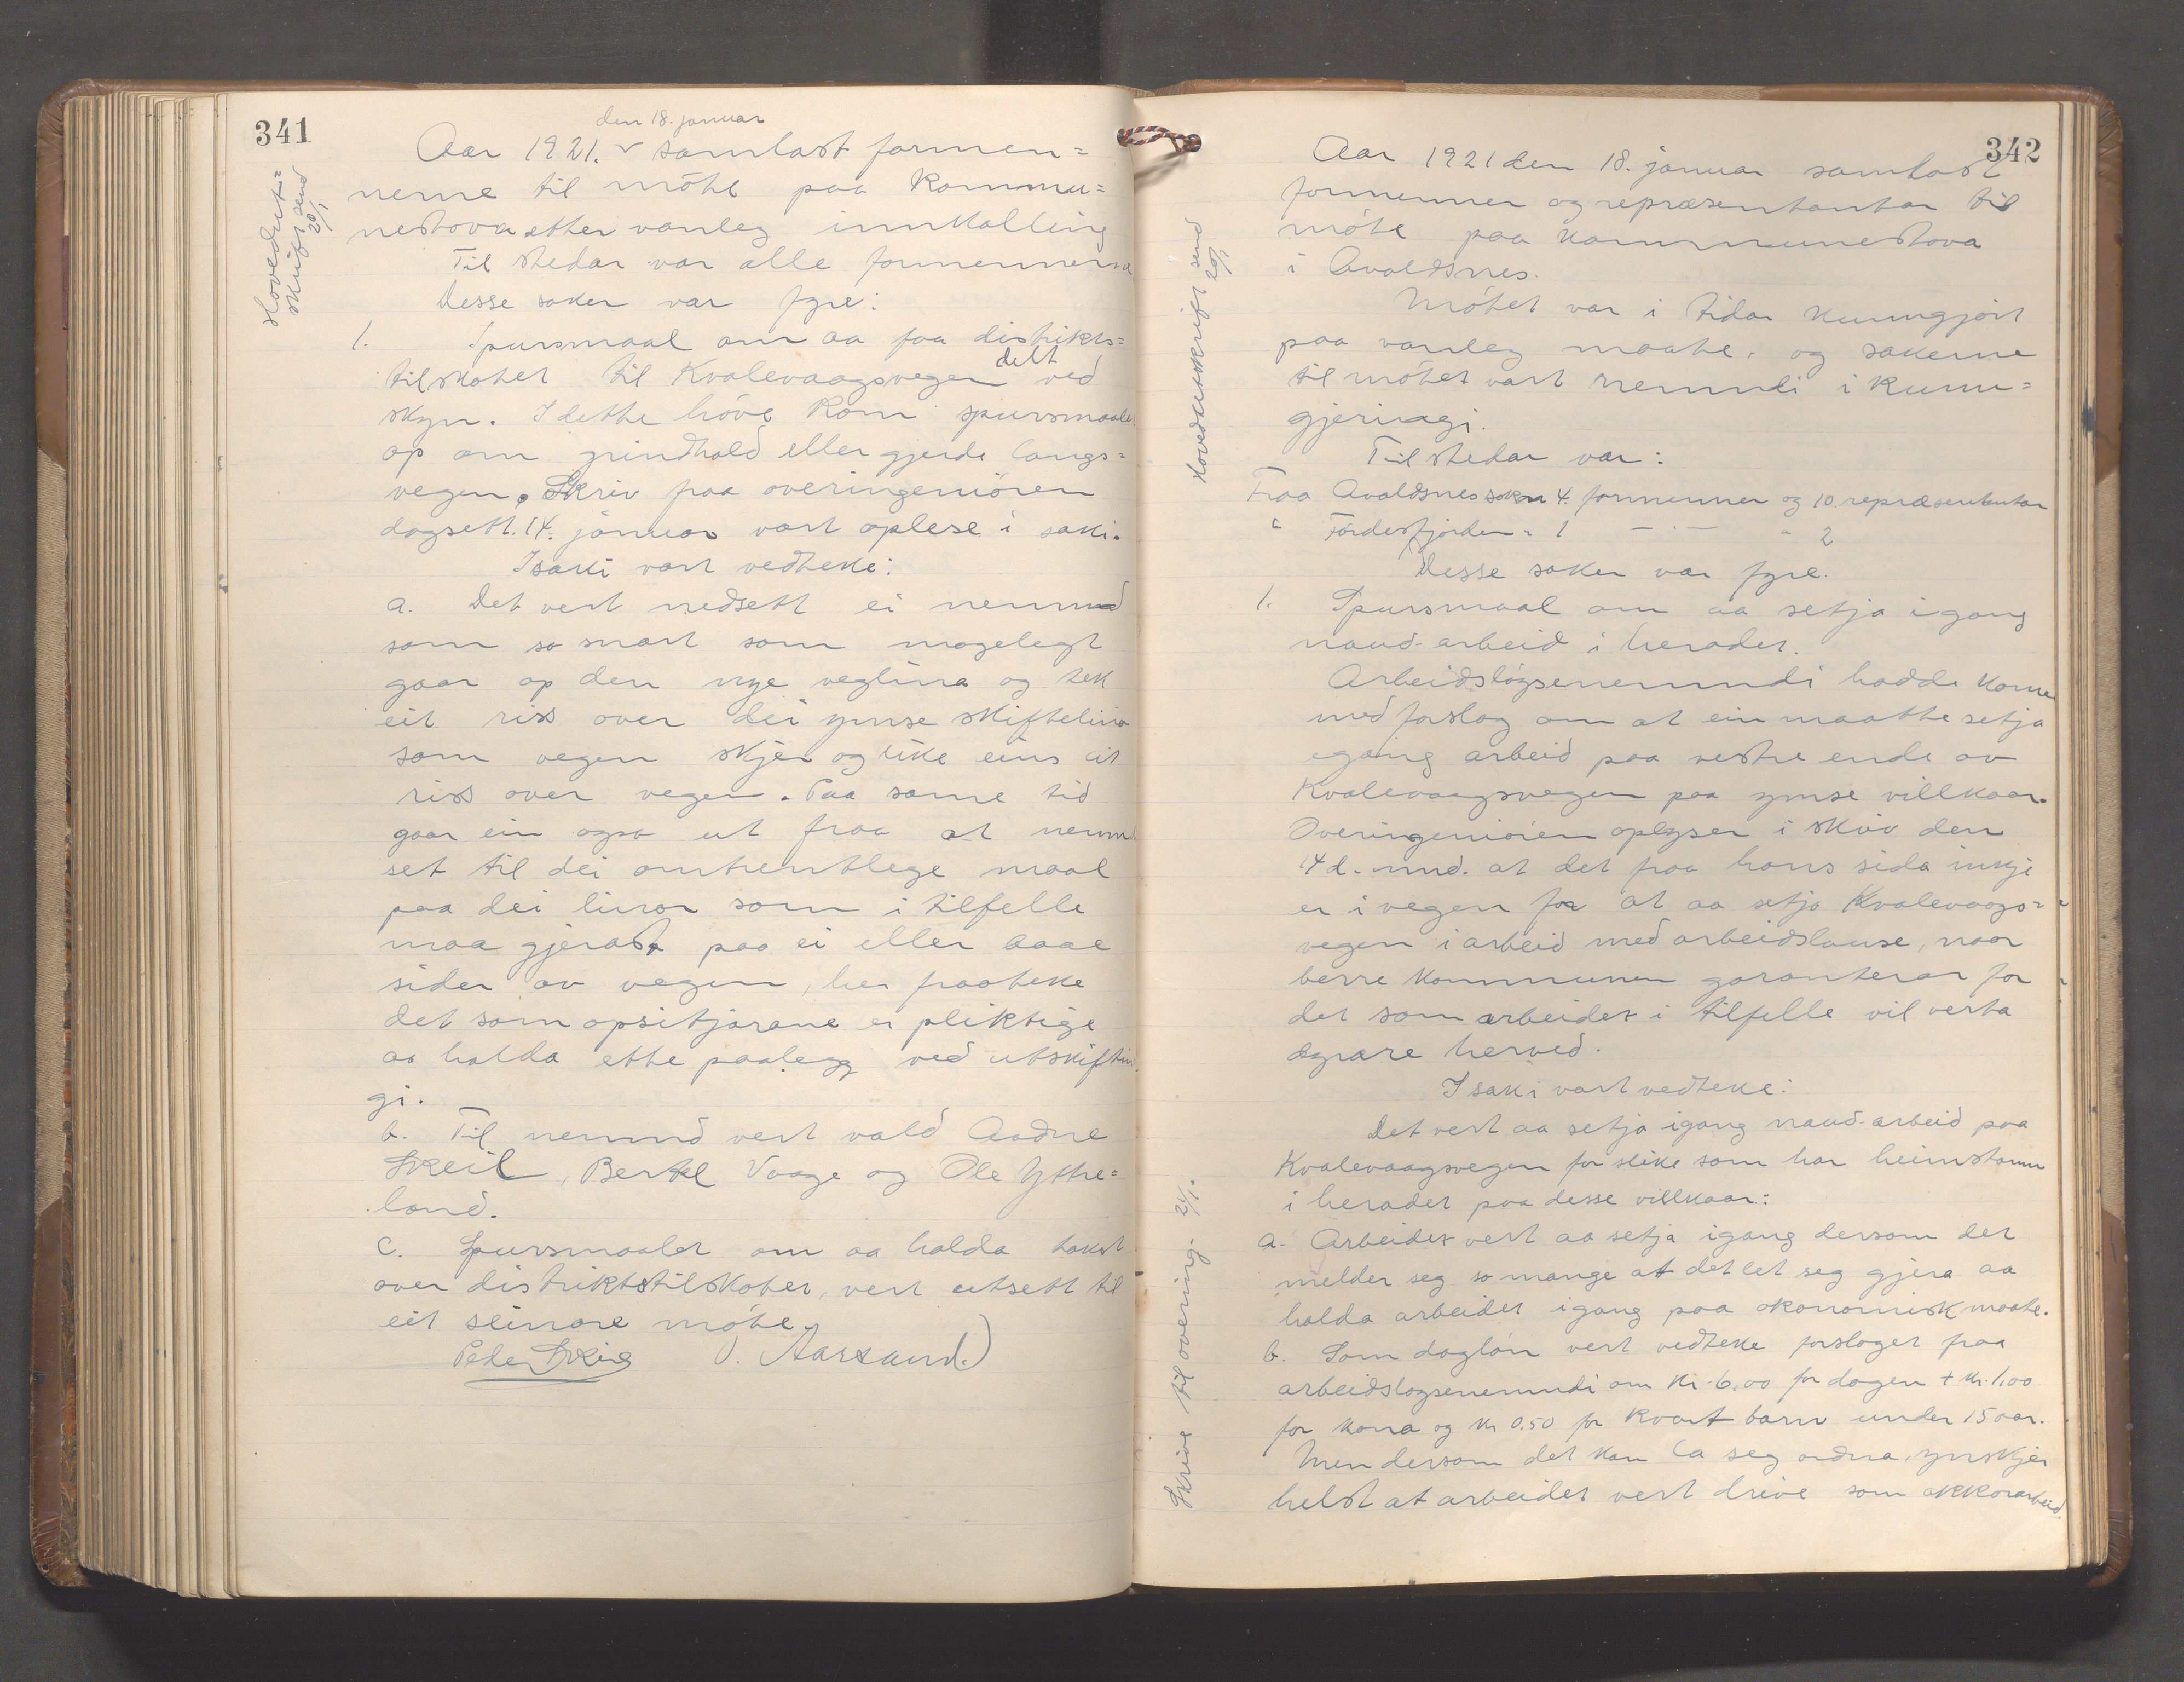 341
Hovedut=
skrift send
20/1
den 18. januar
Aar 1921. v samlast formen=
nerne til möte paa Kommu=
nestova etter vanleg innkalling
Til stedar var alle formennerne
Desse saker var fyre:
1. Spursmaal om aa faa distrikts=
tilskotet til Kvalevaagsvegen delt ved
skyn. I dette höve kom spursmaalet
op om grindhald eller gjerde langs=
vegen. Skriv fraa overingeniören
dagsett. 14. januar vart oplese i saki.
I saki vart vedteke:
a. Det vert nedsett ei nemnd
som so snart som mogelegt
gaar op den nye veglina og tek
eit riss over dei ymse skiftelinor
som vegen skjer og like eins eit
riss over vegen. Paa same tid
gaar ein ogso ut fraa at nemndi
set til dei omtrentlege maal
paa dei linor som i tilfelle
maa gjerast paa ei eller baae
sider av vegen, her fraateke
det som opsitjarane er pliktige
aa halda ette paalegg ved utskiftin
gi.
b. Til nemnd vert vald Aadne
Skeil, Bertel Vaage og Ole Yttre=
land.
c. Spursmaalet om aa halda takst
over distriktstilskotet, vert utsett til
eit seinare möte.
Peder Skeie O. Aarsand.)
342
Hovedutskrift send
20/1
Skrive til overing. 24/1.
Aar 1921 den 18. januar samlast
formenner og repræsentantar til
möte paa kommunestova
i Avaldsnes.
Mötet var i tidar kunngjort
paa vanleg maate, og sakerne
til mötet vart nemndi i kunn=
gjeringi.
Til stedar var:
Fraa Avaldsnes sokn 4 formenner og 10 repræsentantar
" Fördesfjorden = 1 — " — " 2
Desse saker var fyre.
1. Spursmaal om aa setja igang
naud-arbeid i heradet.
Arbeidslöysenemndi hadde kome
med forslag om at ein maatte setja
igang arbeid paa vestre ende av
Kvalevaagsvegen paa ymse villkaar.
Overingeniören oplyser i skriv den
14 d. mnd. at det fraa hans sida inkje
er i vegen for at aa setja Kvalevaags=
vegen i arbeid med arbeidslause, naar
berre kommunen garanterar for
det som arbeidet i tilfelle vil verta
dyrare herved.
I saki vart vedteke:
Det vert aa setja igang naud-arbeid paa
Kvalevaagsvegen for slike som har heimstamn
i heradet paa desse villkaar:
a. Arbeidet vert aa setja igang dersom det
melder seg so mange at det let seg gjera aa
halda arbeidet igang paa økonomisk maate.
b. Som daglön vert vedteke forslaget fraa
arbeidslöysenemndi om kr. 6.00 for dagen + kr. 1.00
for kona og kr 0.50 for kvart barn under 15 aar.
Men dersom det kan la seg ordna, ynskjer
helst at arbeidet vert drive som akkorarbeid.